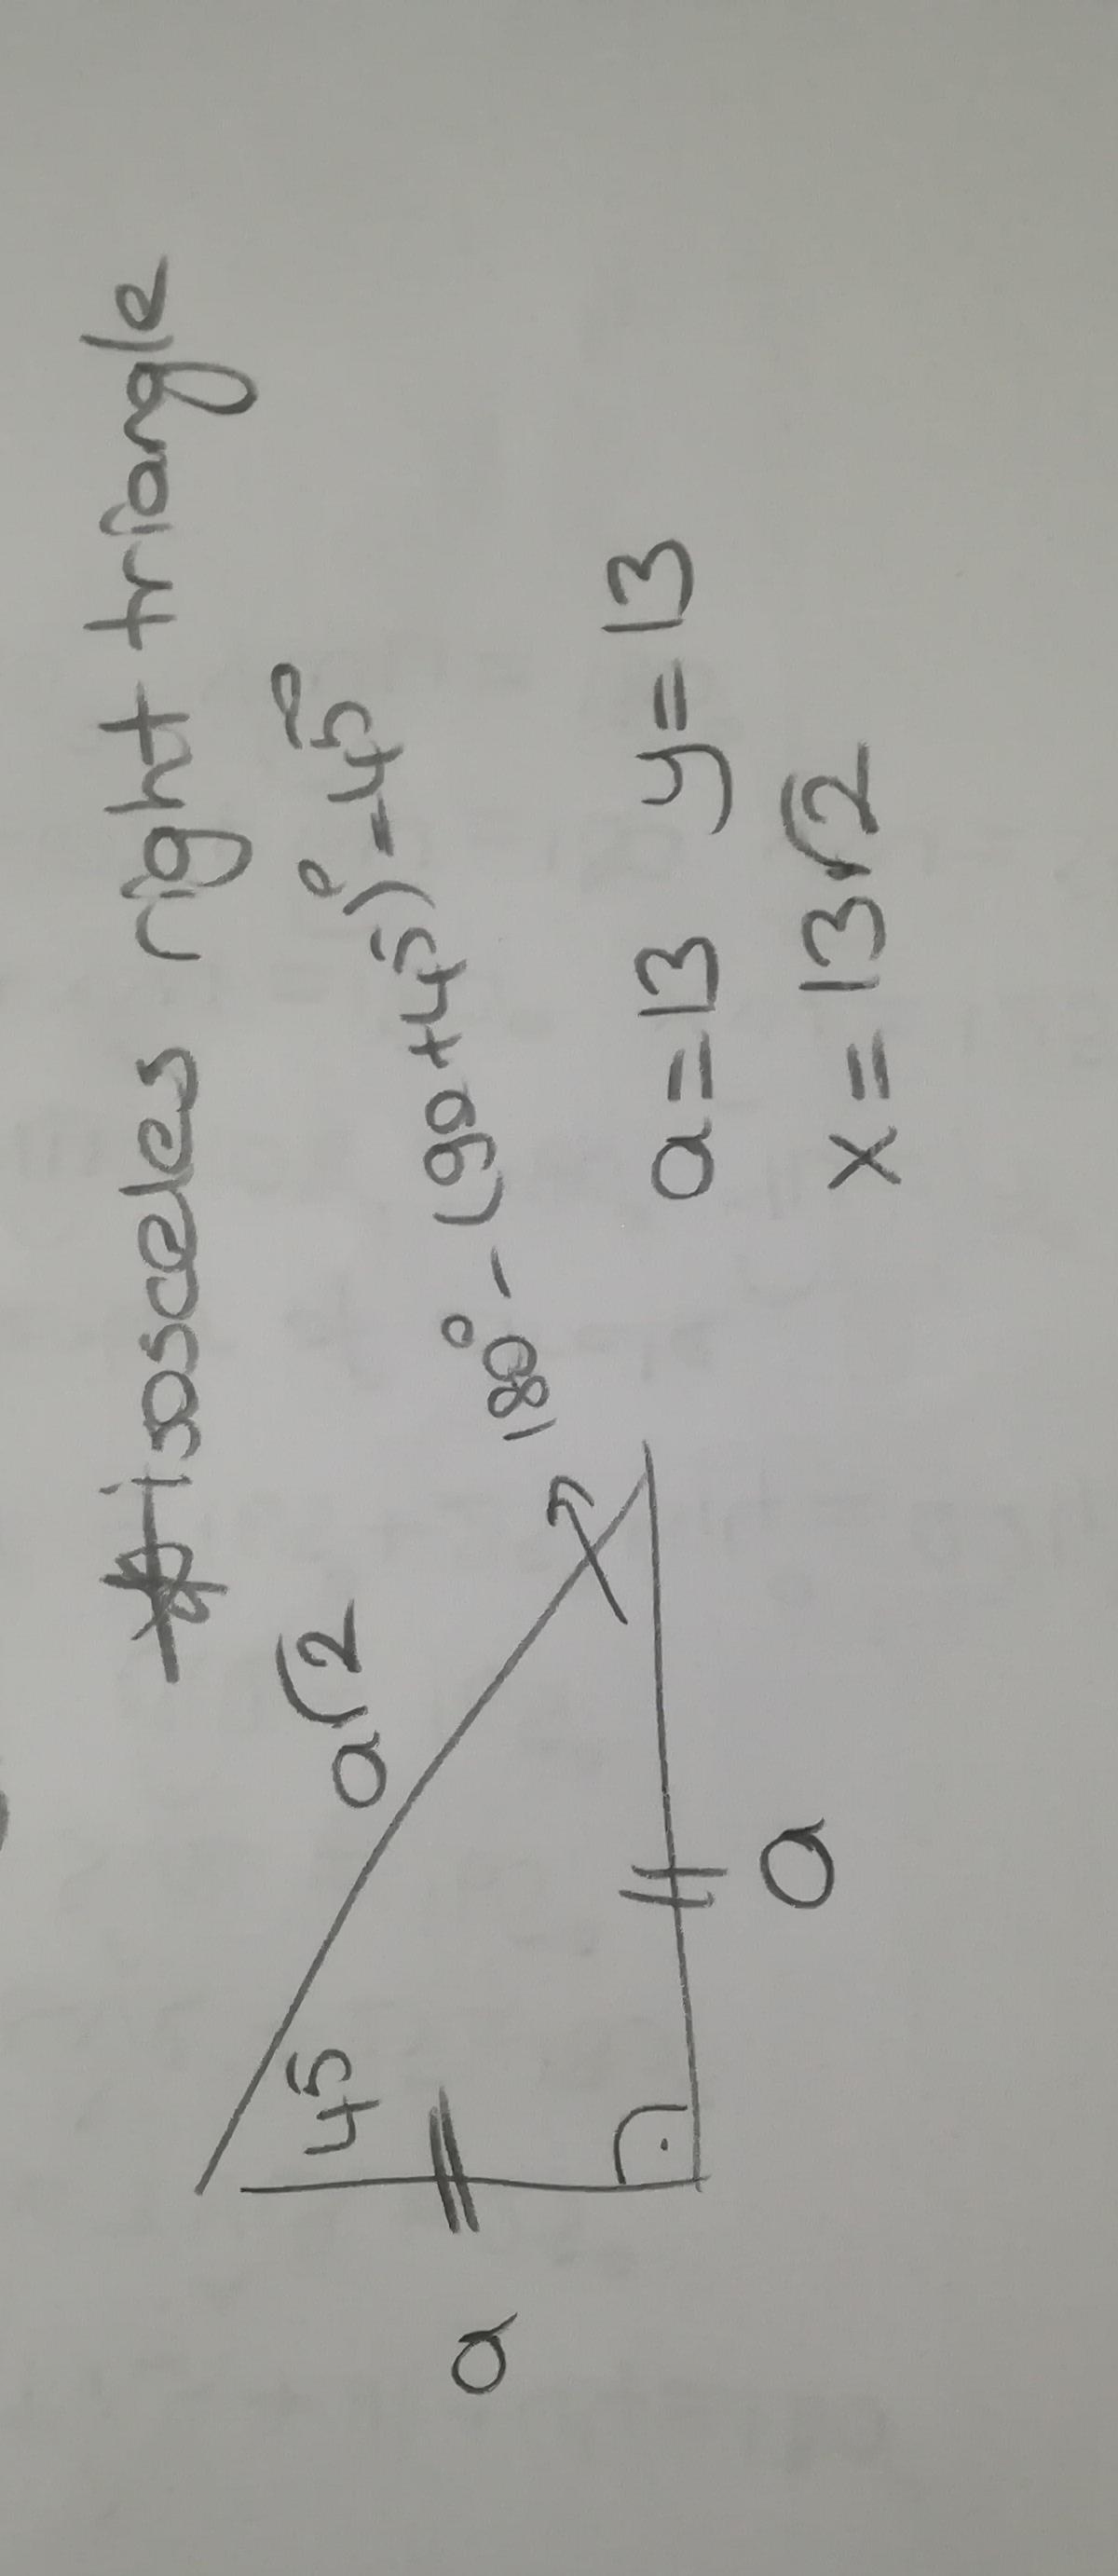 * isosceles right triangle
a√2
180° - (90+45)° = 45°
45
a
a
a=13 y=13
x=13√2